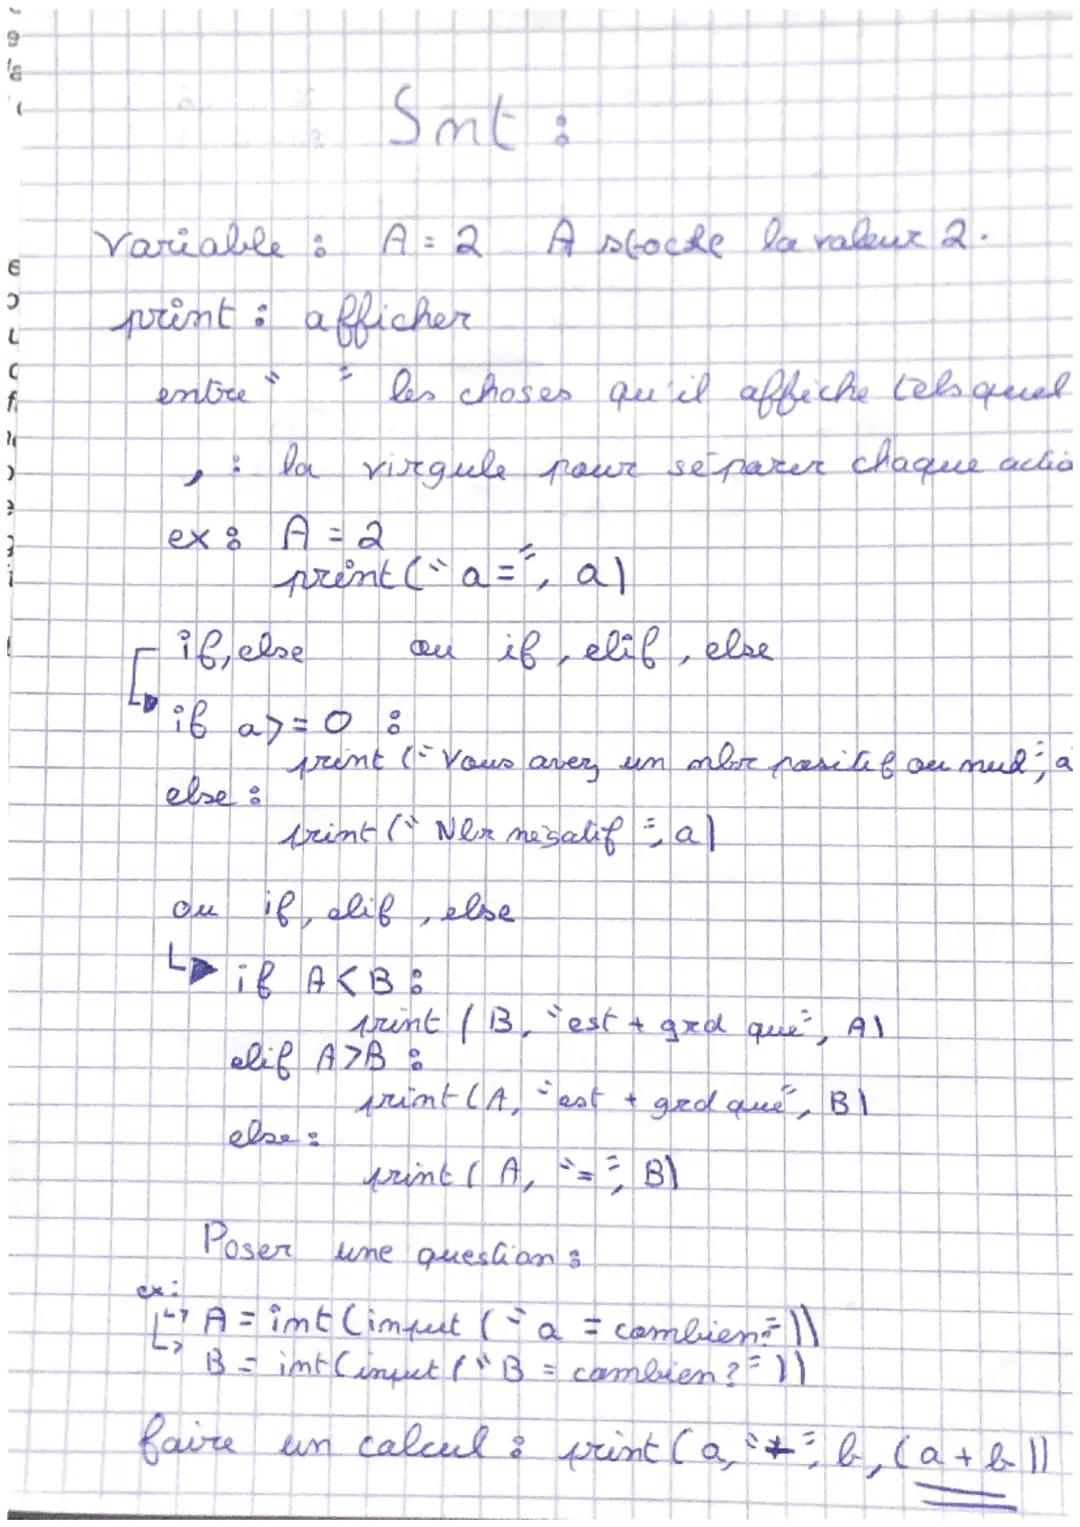 Snt :
Variable : A = 2 A stocke la valeur 2.
print : afficher
entre " " les choses qu'il affiche tels quel
, : la virgule pour séparer chaque actio
ex : A = 2
print (" a = ", a)
if, else ou if, elif, else
if a >= 0 :
print (" Vous avez un nbr positif ou nul", a
else :
print (" Nbr négatif ", a)
ou if, elif, else
if A < B :
print ( B, "est + grd que", A)
elif A > B :
print (A, "est + grd que", B)
else :
print ( A, "=", B)
Poser une question :
ex :
A = int (input (" a = combien ?"))
B = int (input (" B = combien ?"))
faire un calcul : print (a, "+", b, (a + b))